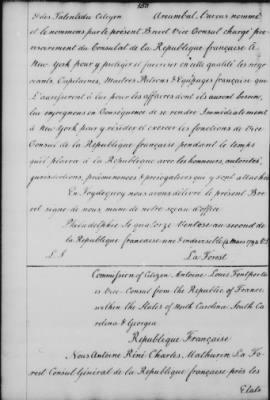 & des Talents du Citoyen Arcambal, l'avons nommé
et le nommons par le présent Brevet Vice Consul chargé pro-
visoirement du Consulat de la République française à
New York pour y protéger et favoriser en cette qualité les négo-
ciants, Capitaines, Maitres, Patrons & Equipages français que
s'adresseront à lui pour les affaires dont ils auront besoin,
lui enjoignons en Conséquence de se rendre Immédiatement
à New York pour y résider et exercer les fonctions de Vice
Consul de la République française pendant le temps
qu'il plaira à la République avec les honneurs, autorités,
jurisdictions, prééminences & prérogatives que y sont attachés
En foy de quoy nous avons délivré le présent Bre-
vet signé de nous, muni de notre sceau d'office
Philadelphie le quatorze Ventose an second de
la République française une & indivisible (4 Mars 1794 V.S.)
L. S. La Forest
Commission of Citizen Antoine Louis Fonspertuis
as Vice Consul from the Republic of France
within the States of North Carolina, South Ca-
rolina & Georgia
République Française
Nous Antoine René Charles Mathurin La Fo-
rest Consul Général de la République française près les
Etats